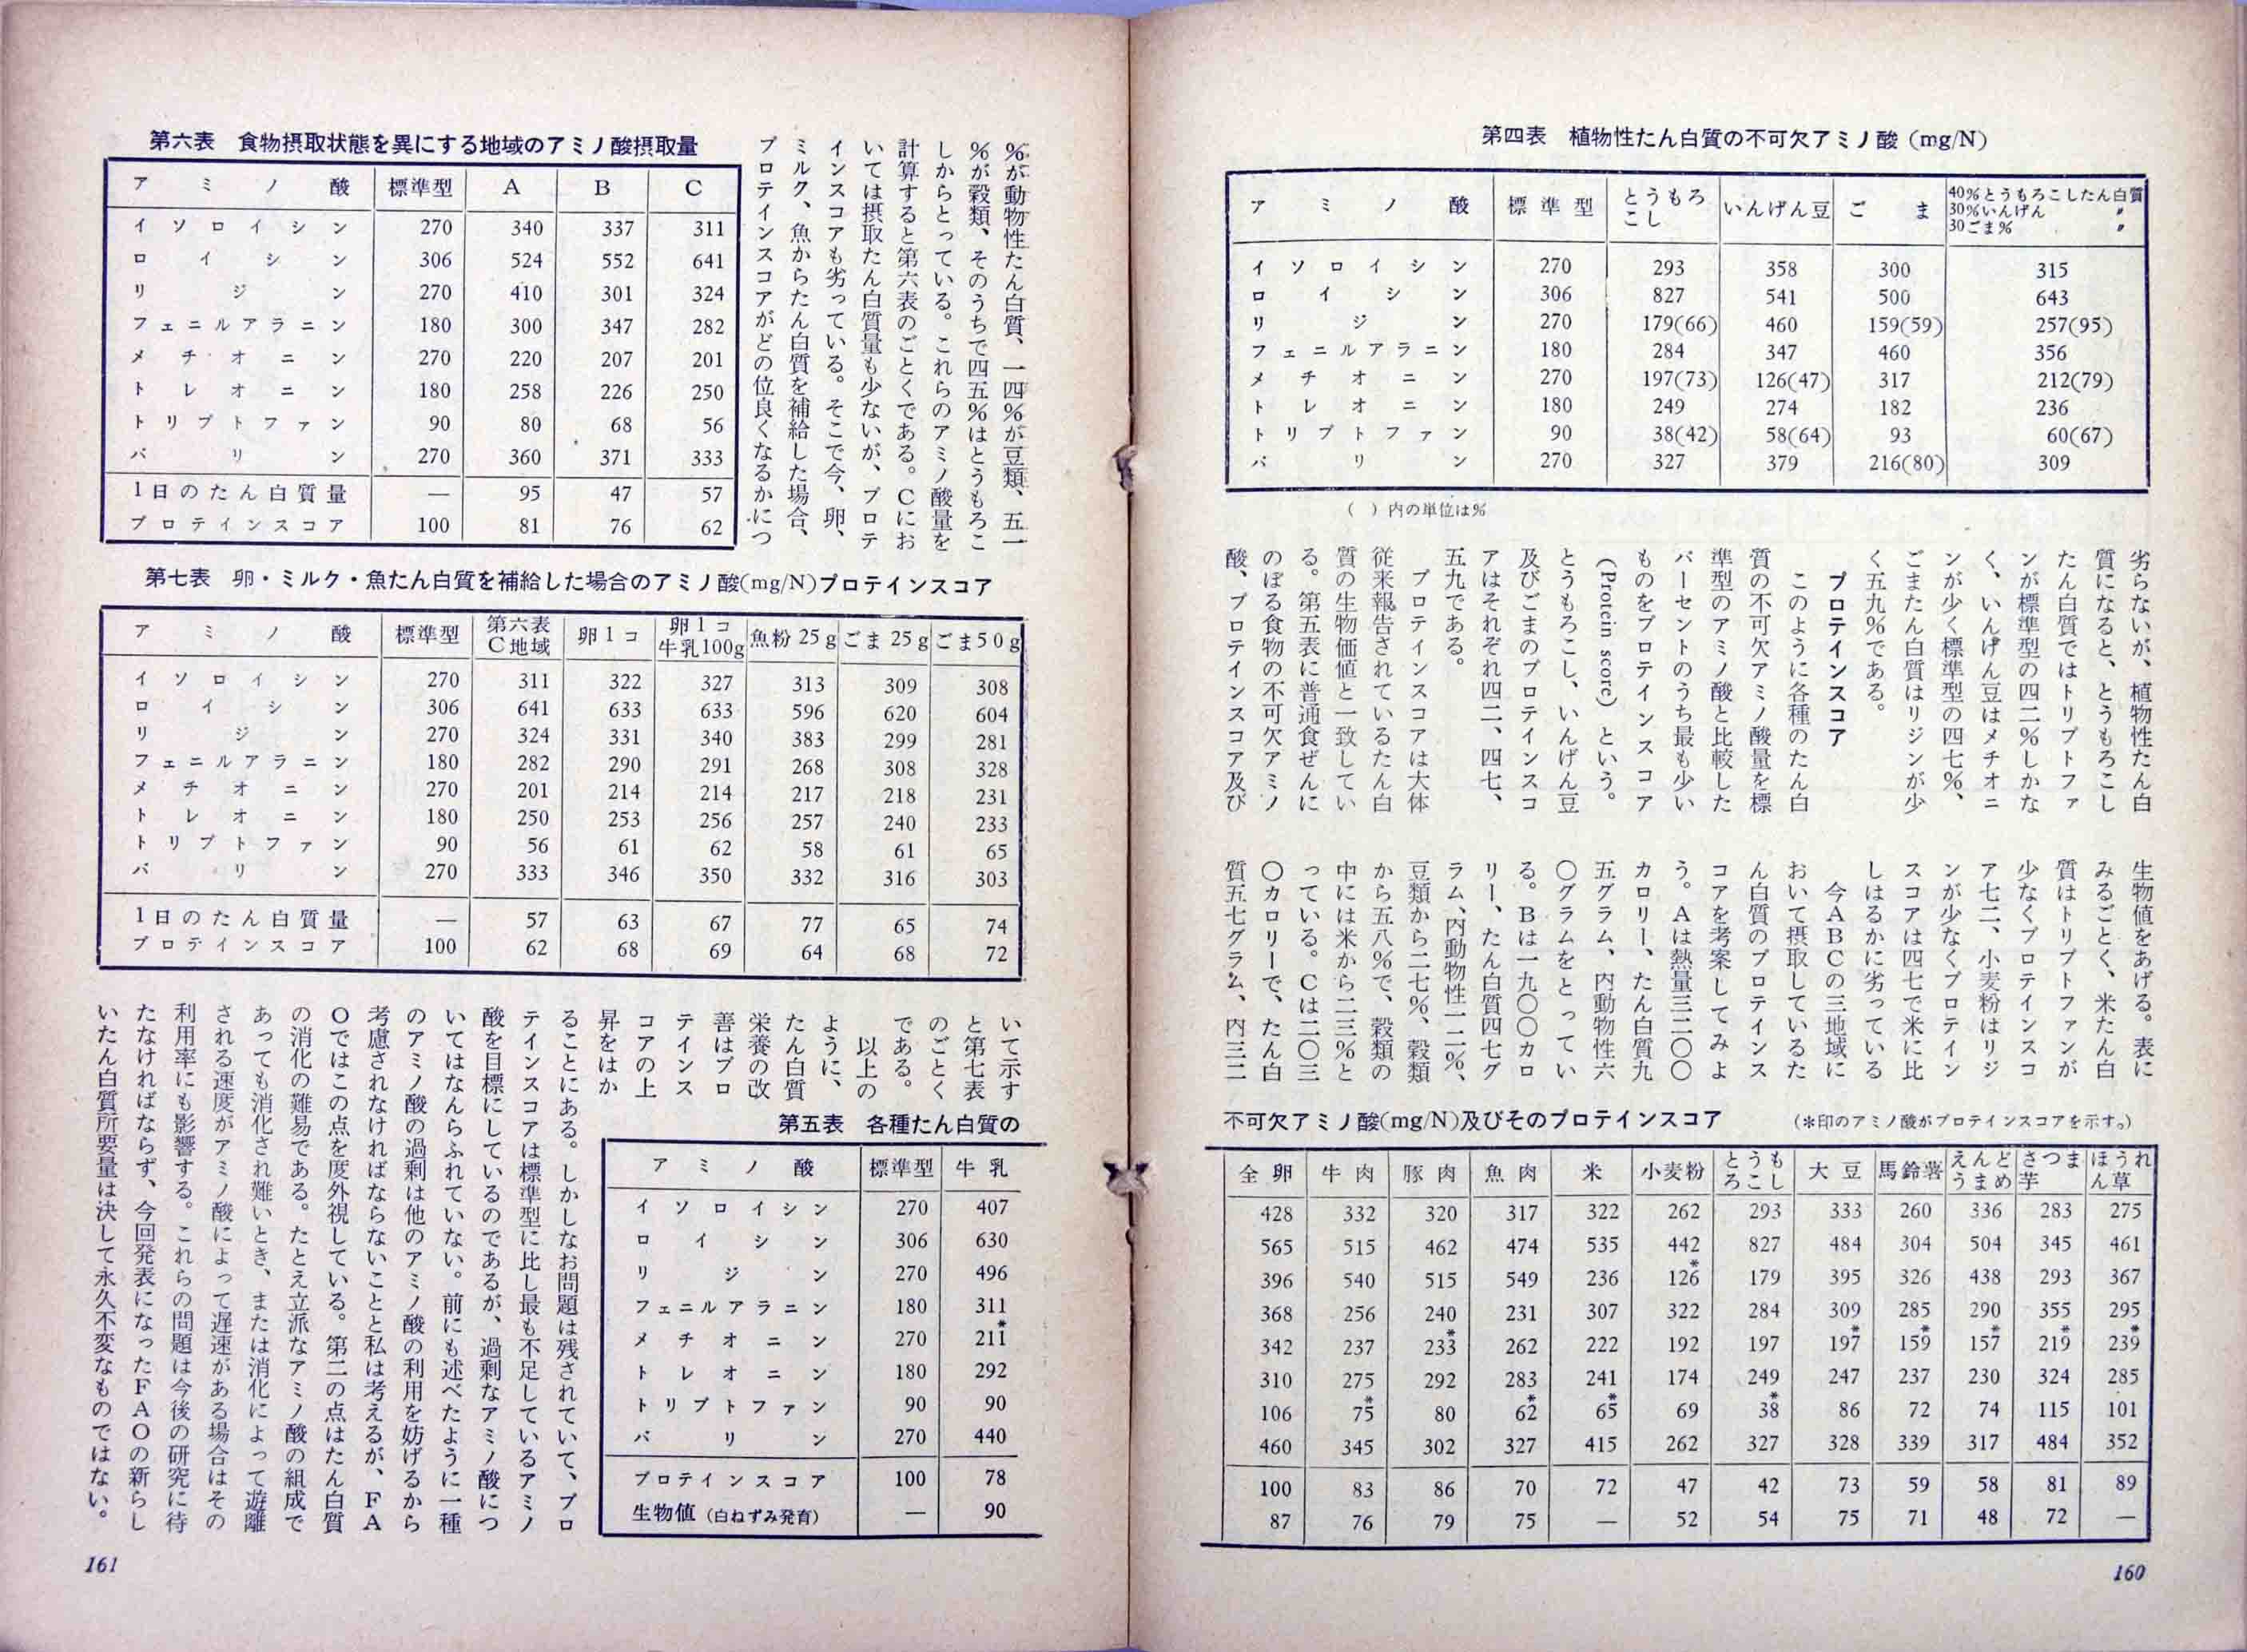 第四表 植物性たん白質の不可欠アミノ酸 (mg/N)
ア ミ ノ 酸 標準型 とうもろこし いんげん豆 ごま 40%とうもろこしたん白質 30%いんげん 〃 30ごま% 〃
イソロイシン 270 293 358 300 315
ロイシン 306 827 541 500 643
リジン 270 179(66) 460 159(59) 257(95)
フェニルアラニン 180 284 347 460 356
メチオニン 270 197(73) 126(47) 317 212(79)
トレオニン 180 249 274 182 236
トリプトファン 90 38(42) 58(64) 93 60(67)
バリン 270 327 379 216(80) 309
( )内の単位は%
劣らないが、植物性たん白
質になると、とうもろこし
たん白質ではトリプトファ
ンが標準型の四二%しかな
く、いんげん豆はメチオニ
ンが少く標準型の四七%、
ごまたん白質はリジンが少
く五九%である。
プロテインスコア
このように各種のたん白
質の不可欠アミノ酸量を標
準型のアミノ酸と比較した
パーセントのうち最も少い
ものをプロテインスコア
(Protein score)という。
とうもろこし、いんげん豆
及びごまのプロテインスコ
アはそれぞれ四二、四七、
五九である。
プロテインスコアは大体
従来報告されているたん白
質の生物価値と一致してい
る。第五表に普通食ぜんに
のぼる食物の不可欠アミノ
酸、プロテインスコア及び
生物値をあげる。表に
みるごとく、米たん白
質はトリプトファンが
少なくプロテインスコ
ア七二、小麦粉はリジ
ンが少なくプロテイン
スコアは四七で米に比
しはるかに劣っている
今ABCの三地域に
おいて摂取しているた
ん白質のプロテインス
コアを考案してみよ
う。Aは熱量三二〇〇
カロリー、たん白質九
五グラム、内動物性六
〇グラムをとってい
る。Bは一九〇〇カロ
リー、たん白質四七グ
ラム、内動物性一二%、
豆類から二七%、穀類
から五八%で、穀類の
中には米から二三%と
っている。Cは二〇三
〇カロリーで、たん白
質五七グラム、内三二
不可欠アミノ酸(mg/N)及びそのプロテインスコア (*印のアミノ酸がプロテインスコアを示す。)
全卵 牛肉 豚肉 魚肉 米 小麦粉 とうもろこし 大豆 馬鈴薯 えんどうまめ さつま芋 ほうれん草
428 332 320 317 322 262 293 333 260 336 283 275
565 515 462 474 535 442 827 484 304 504 345 461
396 540 515 549 236 126* 179 395 326 438 293 367
368 256 240 231 307 322 284 309 285 290 355 295
342 237 233* 262 222 192 197 197* 159* 157* 219* 239*
310 275 292 283 241 174 249 247 237 230 324 285
106 75* 80 62* 65* 69 38* 86 72 74 115 101
460 345 302 327 415 262 327 328 339 317 484 352
100 83 86 70 72 47 42 73 59 58 81 89
87 76 79 75 — 52 54 75 71 48 72 —
160
第六表 食物摂取状態を異にする地域のアミノ酸摂取量
ア ミ ノ 酸 標準型 A B C
イソロイシン 270 340 337 311
ロイシン 306 524 552 641
リジン 270 410 301 324
フェニルアラニン 180 300 347 282
メチオニン 270 220 207 201
トレオニン 180 258 226 250
トリプトファン 90 80 68 56
バリン 270 360 371 333
1日のたん白質量 — 95 47 57
プロテインスコア 100 81 76 62
%が動物性たん白質、一四%が豆類、五一
%が穀類、そのうちで四五%はとうもろこ
しからとっている。これらのアミノ酸量を
計算すると第六表のごとくである。Cにお
いては摂取たん白質量も少ないが、プロテ
インスコアも劣っている。そこで今、卵、
ミルク、魚からたん白質を補給した場合、
プロテインスコアがどの位良くなるかにつ
第七表 卵・ミルク・魚たん白質を補給した場合のアミノ酸(mg/N)プロテインスコア
ア ミ ノ 酸 標準型 第六表C地域 卵1コ 卵1コ牛乳100g 魚粉25g ごま25g ごま50g
イソロイシン 270 311 322 327 313 309 308
ロイシン 306 641 633 633 596 620 604
リジン 270 324 331 340 383 299 281
フェニルアラニン 180 282 290 291 268 308 328
メチオニン 270 201 214 214 217 218 231
トレオニン 180 250 253 256 257 240 233
トリプトファン 90 56 61 62 58 61 65
バリン 270 333 346 350 332 316 303
1日のたん白質量 — 57 63 67 77 65 74
プロテインスコア 100 62 68 69 64 68 72
いて示す
と第七表
のごとく
である。
以上の
ように、
たん白質
栄養の改
善はプロ
テインス
コアの上
昇をはか
ることにある。しかしなお問題は残されていて、プロ
テインスコアは標準型に比し最も不足しているアミノ
酸を目標にしているのであるが、過剰なアミノ酸につ
いてはなんらふれていない。前にも述べたように一種
のアミノ酸の過剰は他のアミノ酸の利用を妨げるから
考慮されなければならないことと私は考えるが、FA
Oではこの点を度外視している。第二の点はたん白質
の消化の難易である。たとえ立派なアミノ酸の組成で
あっても消化され難いとき、または消化によって遊離
される速度がアミノ酸によって遅速がある場合はその
利用率にも影響する。これらの問題は今後の研究に待
たなければならず、今回発表になったFAOの新らし
いたん白質所要量は決して永久不変なものではない。
第五表 各種たん白質の
ア ミ ノ 酸 標準型 牛乳
イソロイシン 270 407
ロイシン 306 630
リジン 270 496
フェニルアラニン 180 311
メチオニン 270 211*
トレオニン 180 292
トリプトファン 90 90
バリン 270 440
プロテインスコア 100 78
生物値(白ねずみ発育) — 90
161